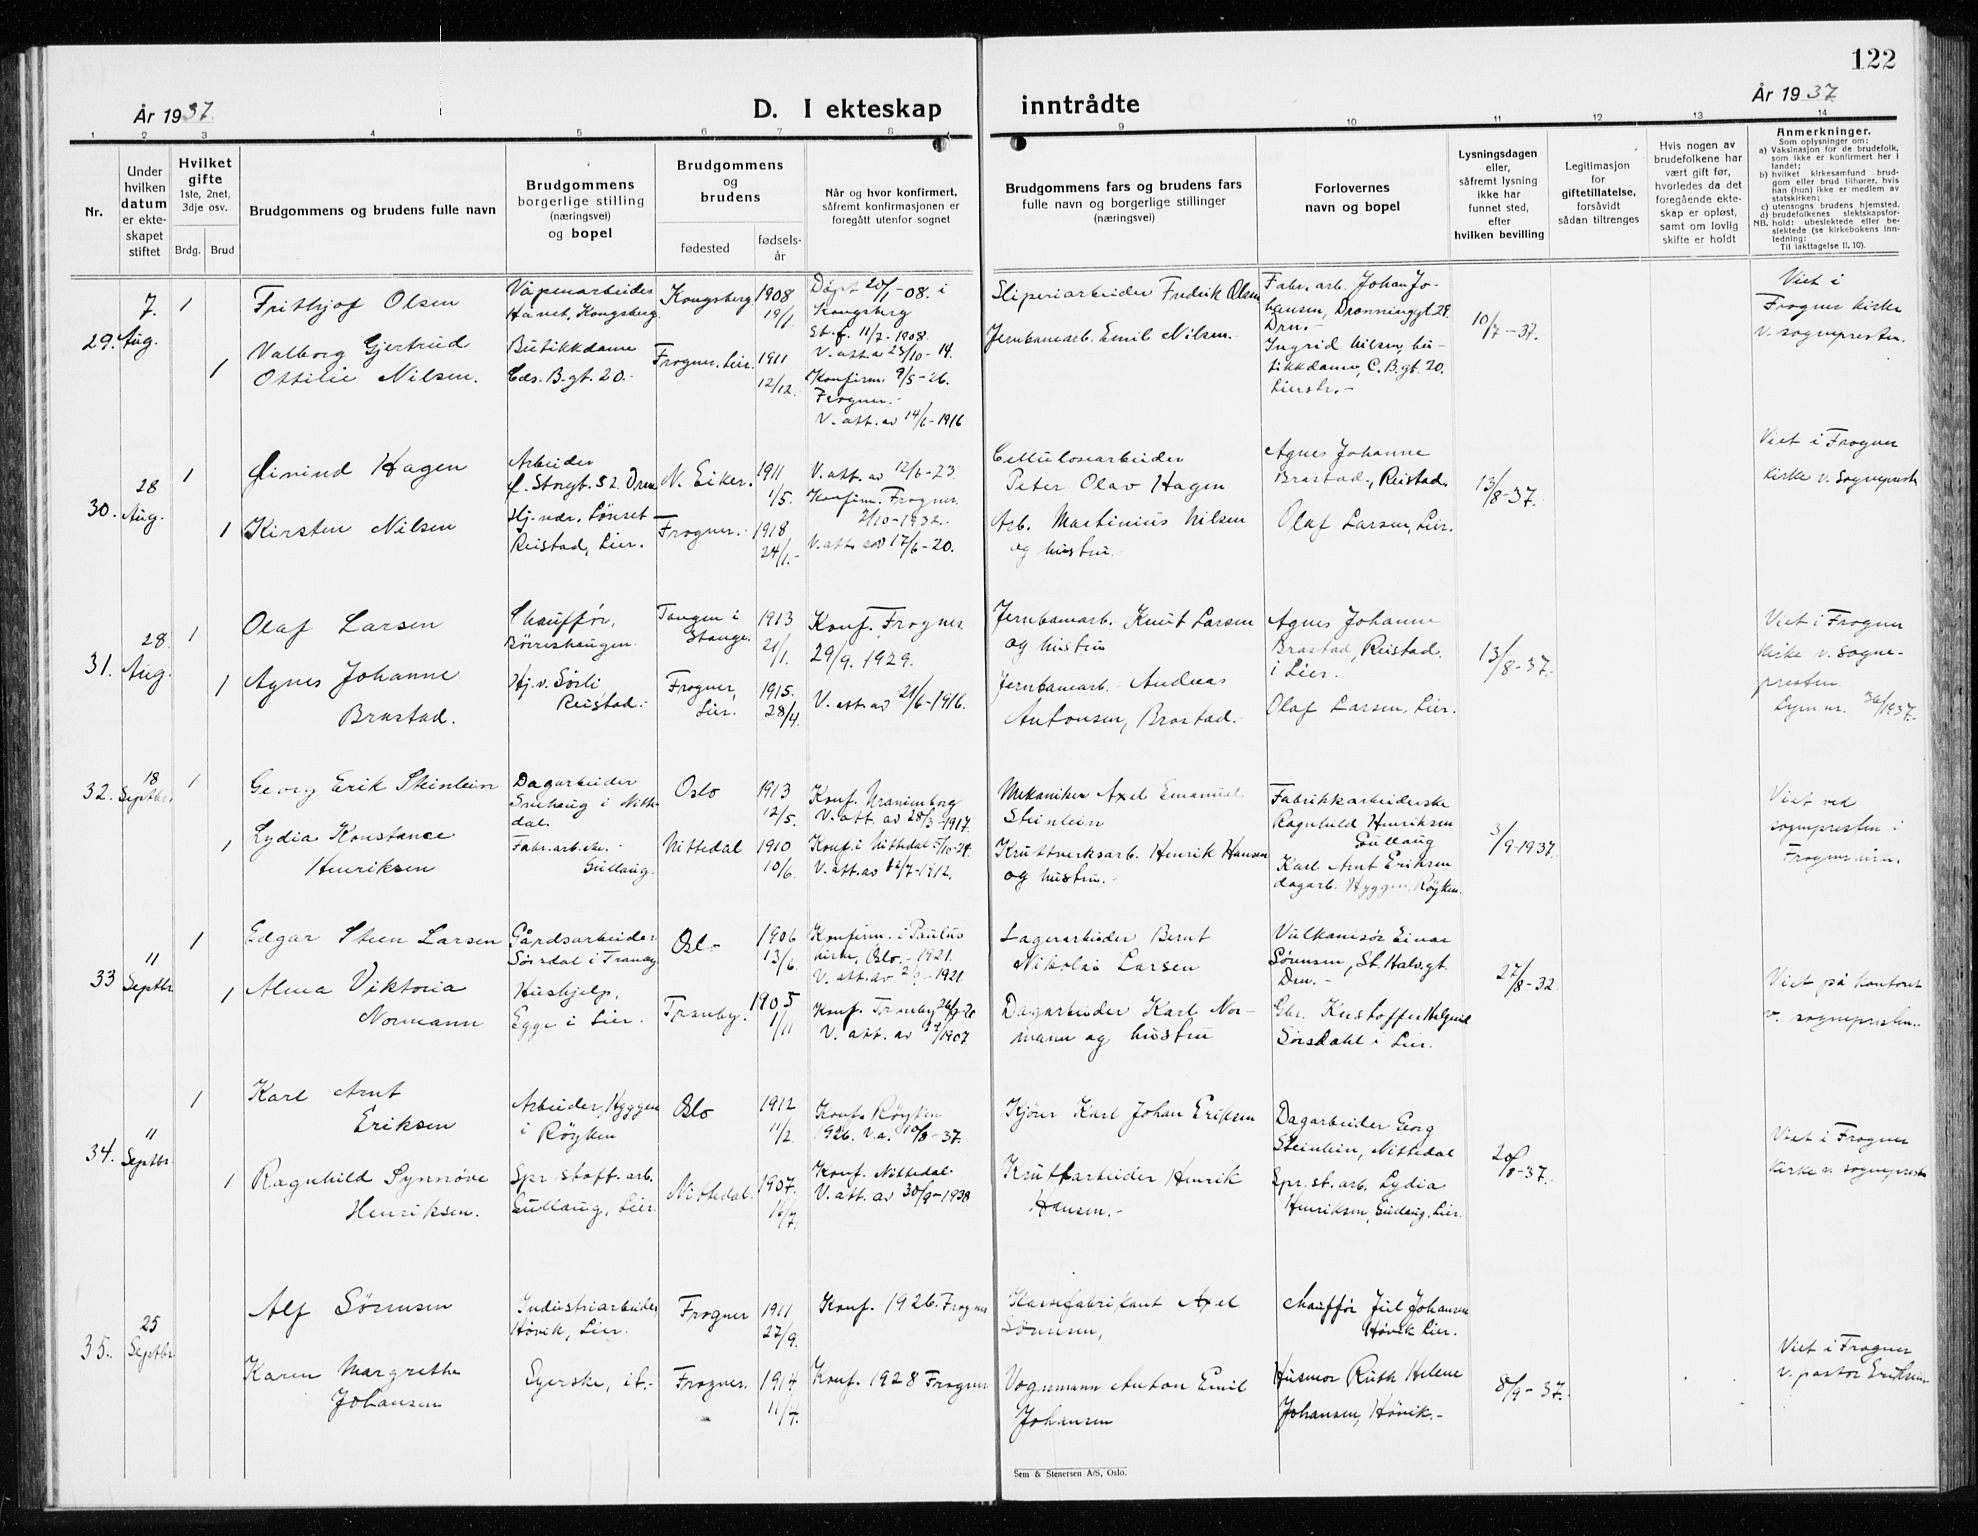 122
År 1937.
D. I ekteskap inntrådte
År 1937
1 2 3 4 5 6 7 8 9 10 11 12 13 14
Nr.
Under hvilken datum er ekteskapet stiftet
Hvilket gifte
1ste, 2net, 3dje osv.
Brdg. Brud
Brudgommens og brudens fulle navn
Brudgommens borgerlige stilling (næringsvei) og bopel
Brudgommens og brudens
fødested
fødsels-år
Når og hvor konfirmert, såfremt konfirmasjonen er foregått utenfor sognet
Brudgommens fars og brudens fars fulle navn og borgerlige stillinger (næringsvei)
Forlovernes navn og bopel
Lysningsdagen eller, såfremt lysning ikke har funnet sted, efter hvilken bevilling
Legitimasjon for giftetillatelse, forsåvidt sådan tiltrenges
Hvis nogen av brudefolkene har vært gift før, hvorledes da det foregående ekteskap er opløst, samt om lovlig skifte er holdt
Anmerkninger.
Som oplysninger om:
a) Vaksinasjon for de brudefolk, som ikke er konfirmert her i landet;
b) hvilket kirkesamfund brudgom eller brud tilhører, hvis han (hun) ikke er medlem av statskirken;
c) utensogns brudens hjemsted.
d) brudefolkenes slektskapsforhold: ubeslektede eller beslektede (se kirkebokens innledning:
NB.
Til iakttagelse II. 10).
29. 7. Aug.
1 Frithjof Olsen
Våpenarbeider
Håvet, Kongsberg.
Kongsberg
1908
19/1.
Døpt 20/1-08. i
Kongsberg
St.f. 11/2-1908.
V. att. a 23/10-14.
Sliperiarbeider Fredrik Olsen
Fabr. arb. Johan Jo-
hansen, Dronninggt. 29.
Drn.-
10/7-37.
Viet i
Frogner kirke
v. sognepresten.
1 Valborg Gjertrud
Ottilie Nilsen.
Butikkdame
C.B.gt. 20.-
Frogner, Lier.
1911
12/12.
Konfirm. 9/5-26.
Frogner.-
V. att. av 14/6-1916
Jernbanearb. Emil Nilsen.-
Ingrid Nilsen, bu-
tikkdame, C.B.gt. 20.
Lierstr.-
30. 28 Aug.
1 Eivind Hagen
Arbeider
f. Storgt. 52. Drm
N. Eiker.
1911
1/5.
V. att. av 12/6-23.
Cellulosearbeider
Peter Olav Hagen
Agnes Johanne
Brastad, Reistad.
13/8-37.
Viet i Frogner
kirke v. Sogneprest
1 Kirsten Nilsen
Reistad, Lier.
Frogner.-
1918
24/1.-
Konfirm. Frogner
2/10-1932.-
V. att. av 17/6-20.
Arb. Martinius Nilsen
og hustru.
Olaf Larsen, Lier.
31. 28. Aug.
1 Olaf Larsen
Chauffør,
Børreshaugen.
Tangen i
Stange.
1913
21/1.
Konf. Frogner
29/9. 1929.
Jernbanearb. Knut Larsen
og hustru
Agnes Johanne
Brastad, Reistad.
i Lier.
13/8-37.
Viet i Frogner
kirke v. sogne-
presten.
1 Agnes Johanne
Brastad.
Hj. v. Sørli
Reistad.-
Frogner,
Lier.
1915.
28/4.
V. att. av 21/6-1916.
Jernbanearb. Andreas
Antonsen, Brastad.-
Olaf Larsen, Lier.
32. 18 Septbr.
1 Georg Erik Steinlein
Dagarbeider
Snehaug i Nitte-
dal.
Oslo
1913
12/5.
Konf. Uranienborg
V. att. av 28/3-1917.
Mekaniker Axel Emanuel
Steinlein
Fabrikkarbeiderske
Ragnhild Henriksen
Gullaug
3/9-1937.
Viet ved
sognepresten i
1 Lydia Konstance
Henriksen
Fabr. arb.ske.-
Gullaug.
Nittedal
1910
10/6.
Konf. i Nittedal 5/10-24.
V. att. av 22/7-1912.
Kruttverksarb. Henrik Hansen
og hustru.-
Karl Arnt Eriksen
dagarb. Hyggen, Røyken.
33 11 Septbr
1 Edgar Steen Larsen
Gårdsarbeider
Sørsdal i Tranby
Oslo
1906
13/6.
Konfirm. i Paulus
kirke, Oslo.-1921.
Lagerarbeider Bernt
Nikolai Larsen
Vulkanisør Einar
Sørensen, St. Halv.gt.
Drn.-
27/8-32.
Viet på kontoret
v. sognepresten.
1 Alma Viktoria
Normann
Hushjelp,
Egge i Lier.
Tranby.
1905
1/11
Konf. Tranby
Dagarbeider Karl Nor-
mann og hustru
Gbr. Kristoffer
Sørsdahl i Lier.
34. 11 Septbr.
1 Karl Arnt
Eriksen
Arbeider, Hyggen
i Røyken
Oslo
1912
11/2.
Konf. Røyken
1926. V.a. 10/8-37.
Kjører Karl Johan Eriksen
Dagarbeider Georg
Steinlein, Nittedal
20/8-37.
Viet i Frogner
kirke v. sogneprest
1 Ragnhild Synnøve
Henriksen.
Spr. stoff. arb.
Gullaug, Lier.
Nittedal.
1907.
16/7.
Konf. Nittedal.
V. att. av 30/9-1938
Kruttarbeider Henrik
Hansen.-
Spr. st. arb. Lydia
Henriksen, Gullaug, Lier.
35. 25 Septbr
Alf Sørensen
Industriarbeider,
Høvik, Lier.
Frogner
1911
27/9.
Konf. 1926. Frogner
Kassefabrikant Axel
Sørensen,
Chauffør Juel Johansen
Høvik Lier.
8/9-37.
Viet i Frogner
v. pastor
Karen Margrethe
Johansen
Syerske, ib.-
Frogner.
1914
11/4.
Konf. 1928 Frogner
Vognmann Anton Emil
Johansen
Husmor Ruth Helene
Johansen, Høvik.-
Sem & Stenersen A/S, Oslo.